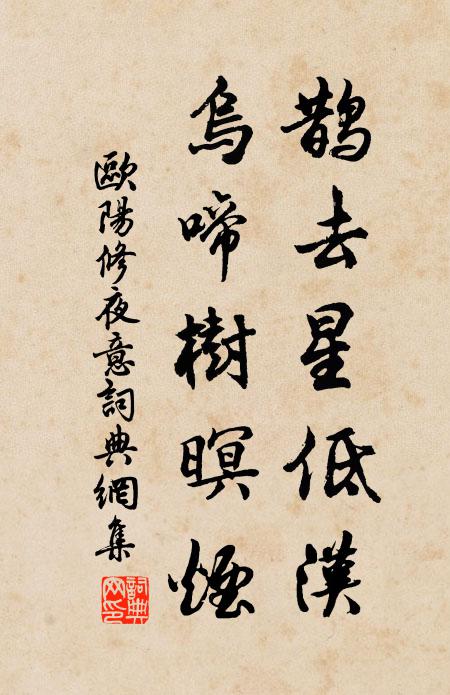 鵲去星低漢
烏啼樹暝煙
歐陽修夜意詞典網集
詞典
網印